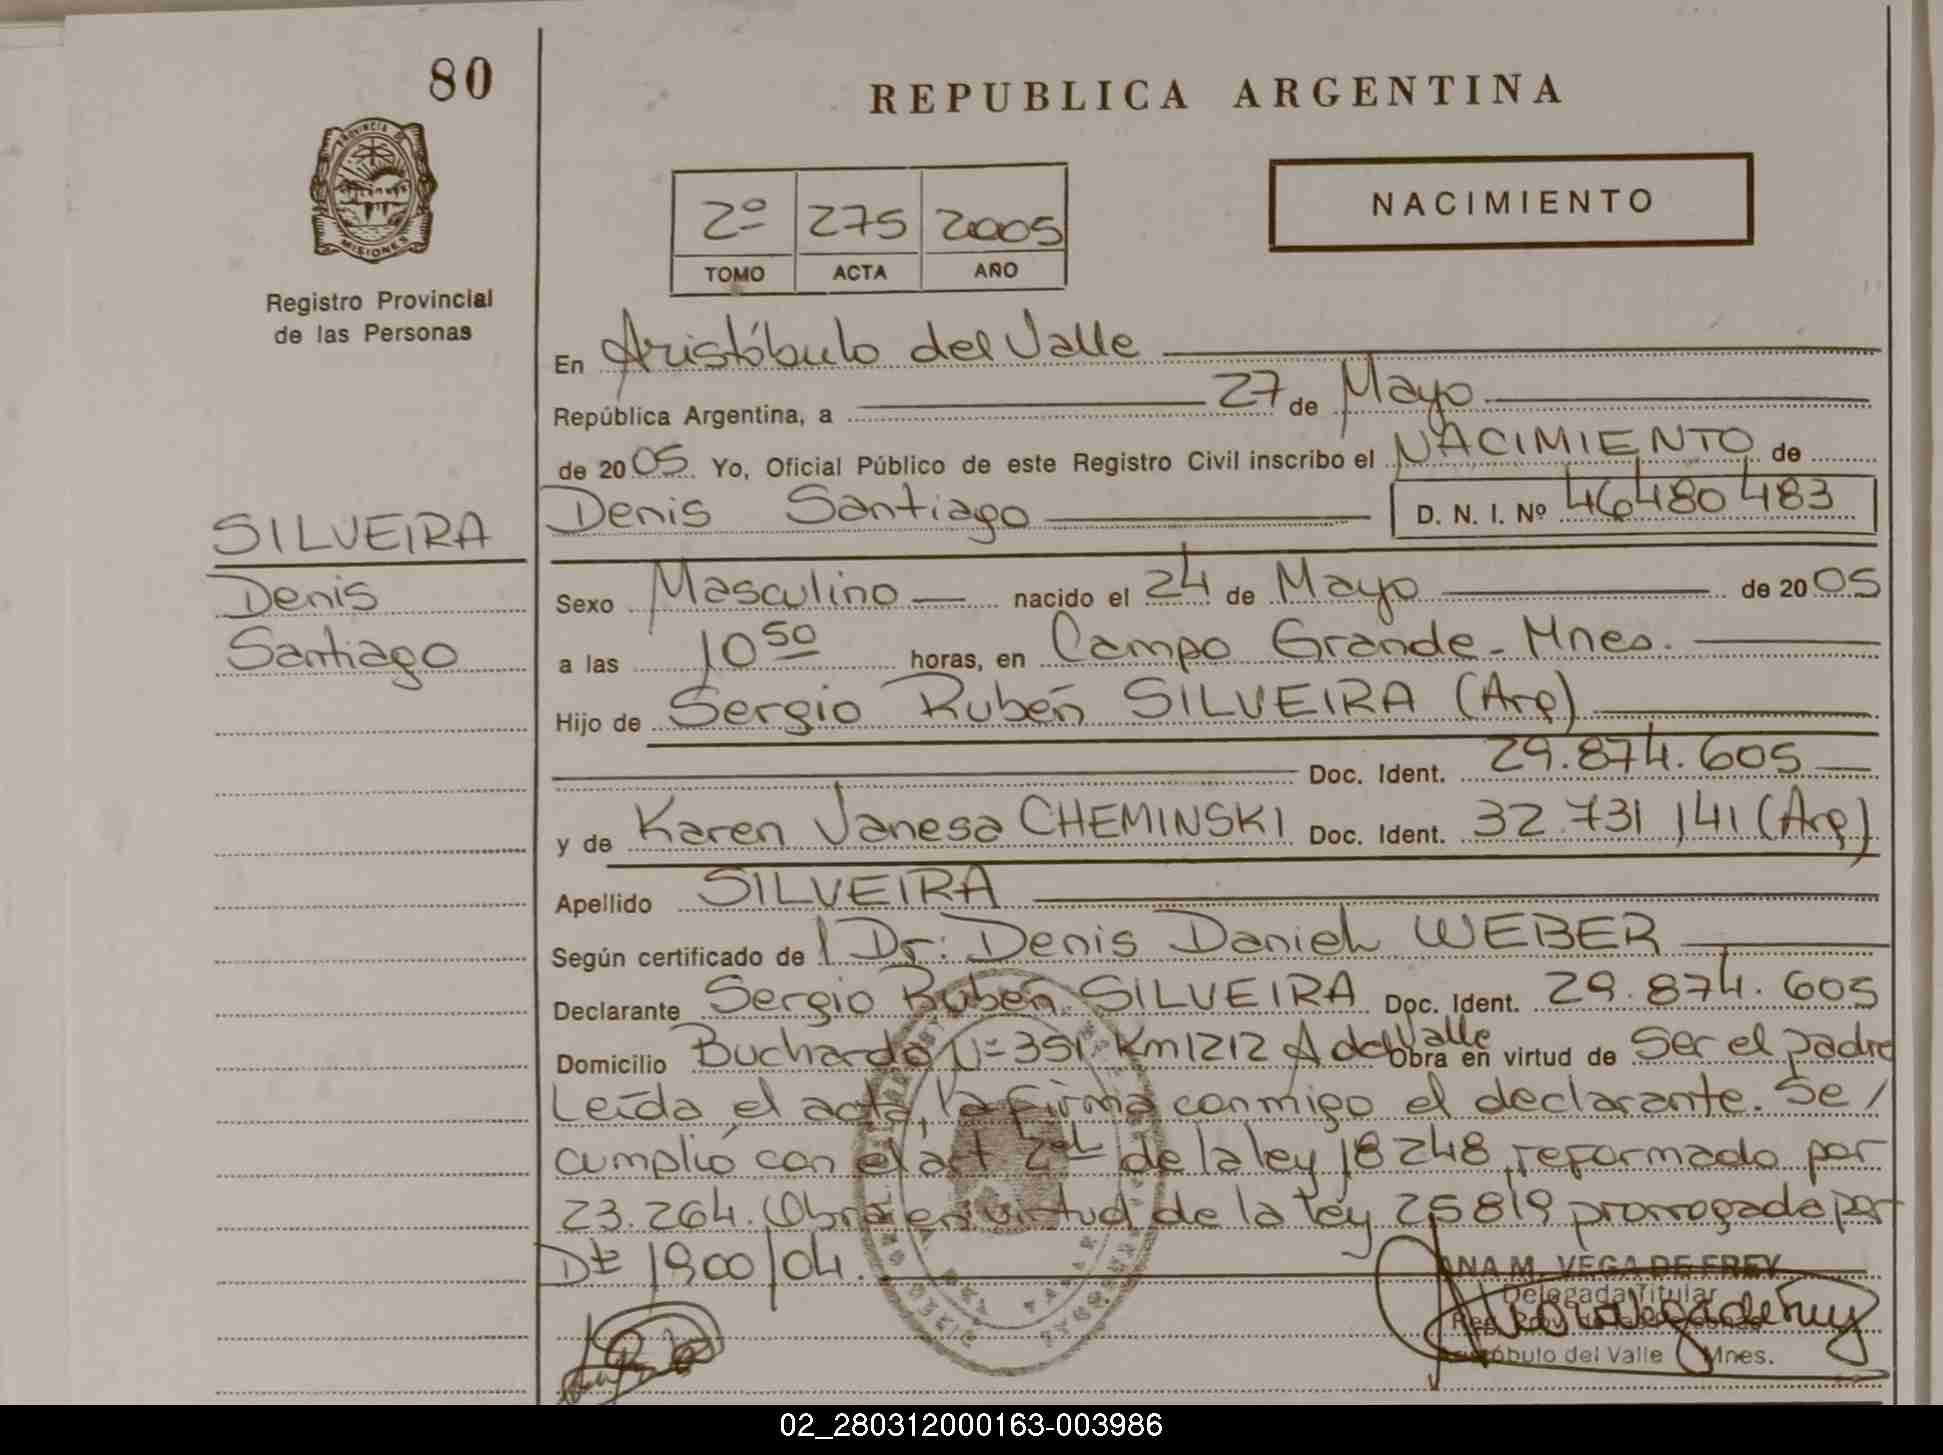 80
REPUBLICA ARGENTINA
PROVINCIA DE
MISIONES
Registro Provincial
de las Personas
2º 275 2005
TOMO ACTA AÑO
NACIMIENTO
En Aristóbulo del Valle
República Argentina, a 27 de Mayo
de 2005. Yo, Oficial Público de este Registro Civil inscribo el NACIMIENTO de
Denis Santiago D. N. I. Nº 46480483
SILVEIRA
Denis
Santiago
Sexo Masculino nacido el 24 de Mayo de 2005
a las 10 50 horas, en Campo Grande - Mnes.
Hijo de Sergio Rubén SILVEIRA (Arg)
Doc. Ident. 29.874.605
y de Karen Vanesa CHEMINSKI Doc. Ident. 32.731.141 (Arg)
Apellido SILVEIRA
Según certificado de l Dr: Denis Daniel WEBER
Declarante Sergio Rubén SILVEIRA Doc. Ident. 29.874.605
Domicilio Buchardo Nº 351 Km 1212 A del Valle Obra en virtud de ser el padre
Leída el acta, la firma conmigo el declarante. Se
cumplió con el art 2º de la ley 18248 reformado por
23.264. Obra en virtud de la ley 25819 prorrogada por
Dto 1900/04.
ANA M. VEGA DE FREY
Delegada Titular
Aristóbulo del Valle Mnes.
02_280312000163-003986